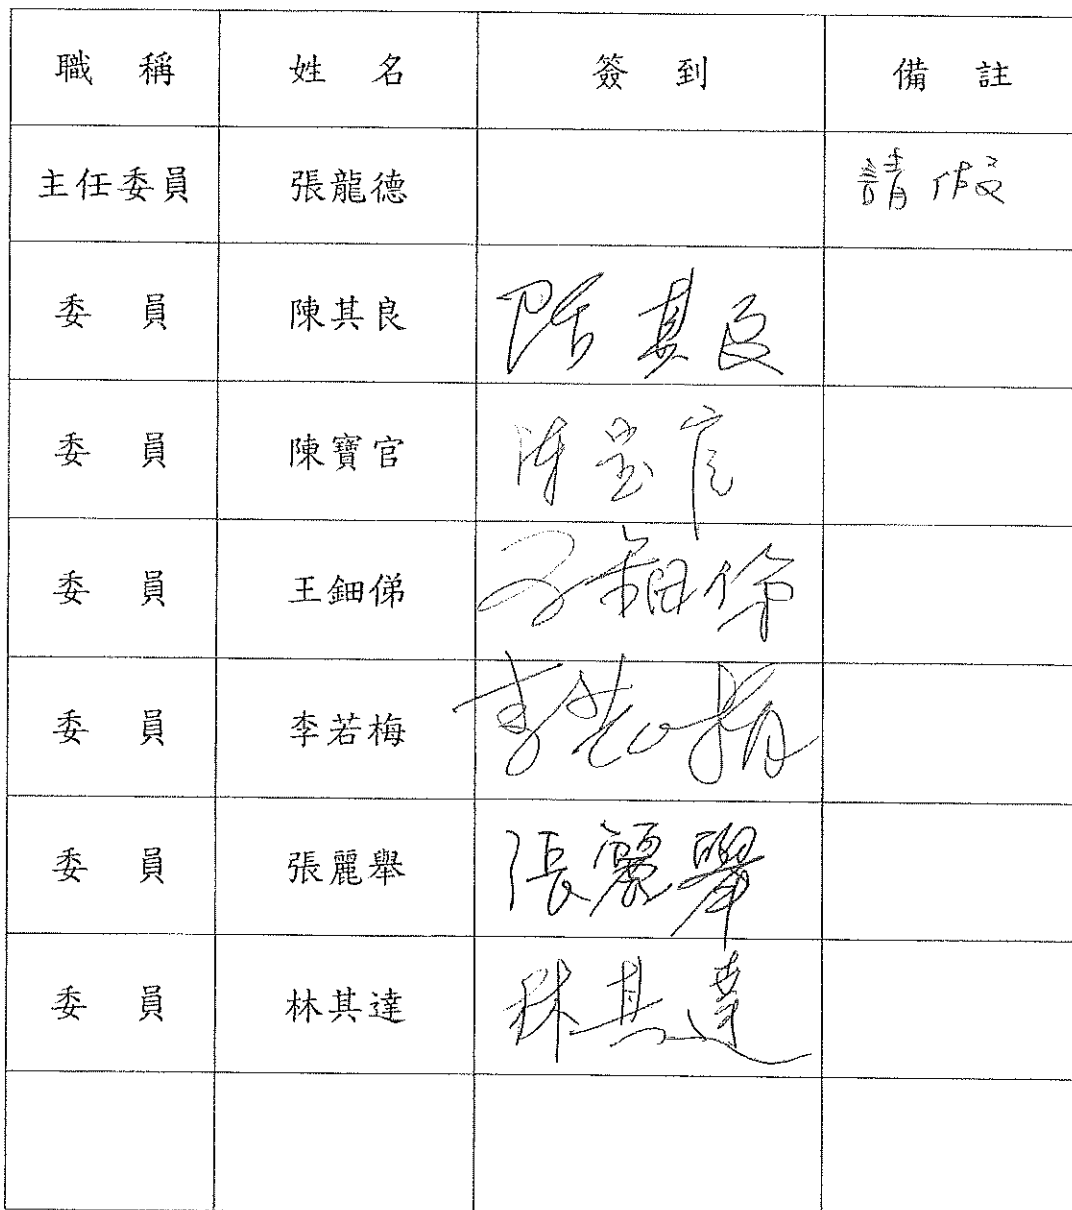 職稱 姓名 簽到 備註
主任委員 張龍德 請假
委員 陳其良 陳其良
委員 陳寶官 陳宝官
委員 王鈿俤 王鈿俤
委員 李若梅 李若梅
委員 張麗舉 張麗舉
委員 林其達 林其達